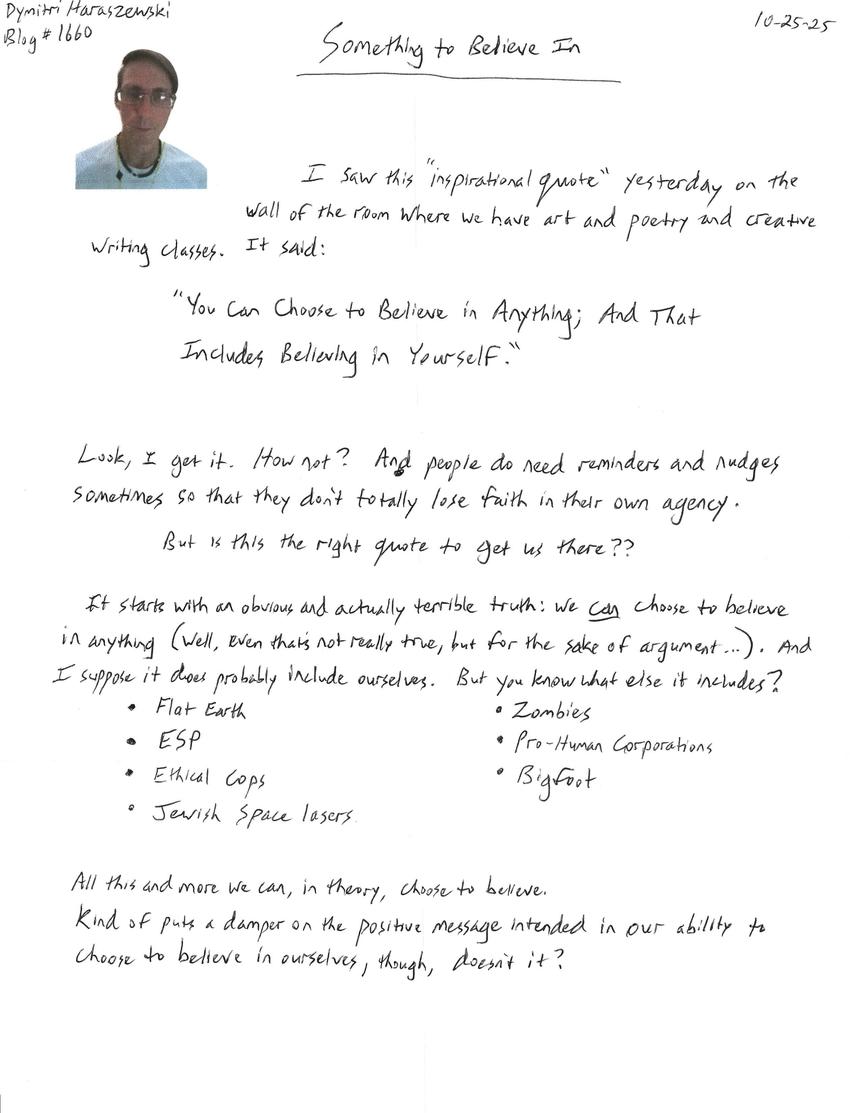 Dymitri Haraszewski
Blog # 1660
10-25-25
Something to Believe In
I saw this "inspirational quote" yesterday on the
wall of the room where we have art and poetry and creative
writing classes. It said:
"You Can Choose to Believe in Anything; And That
Includes Believing in Yourself."
Look, I get it. How not? And people do need reminders and nudges
sometimes so that they don't totally lose faith in their own agency.
But is this the right quote to get us there??
It starts with an obvious and actually terrible truth: we can choose to believe
in anything (well, even that's not really true, but for the sake of argument...). And
I suppose it does probably include ourselves. But you know what else it includes?
• Flat Earth
• ESP
• Ethical Cops
• Jewish Space lasers
• Zombies
• Pro-Human Corporations
• Bigfoot
All this and more we can, in theory, choose to believe.
Kind of puts a damper on the positive message intended in our ability to
choose to believe in ourselves, though, doesn't it?